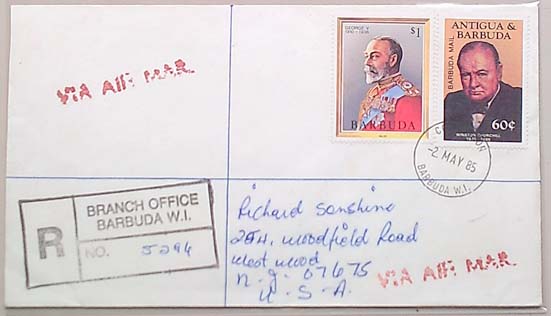 VIA AIR MAIL
GEORGE V
1910-1936
$1
BARBUDA
ANTIGUA &
BARBUDA
BARBUDA MAIL
60¢
WINSTON CHURCHILL
-2 MAY 85
BARBUDA W.I.
R
BRANCH OFFICE
BARBUDA W.I.
NO. 5294
Richard Sonshine
254, Woodfield Road
West wood
n-J- 07675
U-S-A-
VIA AIR MAIL